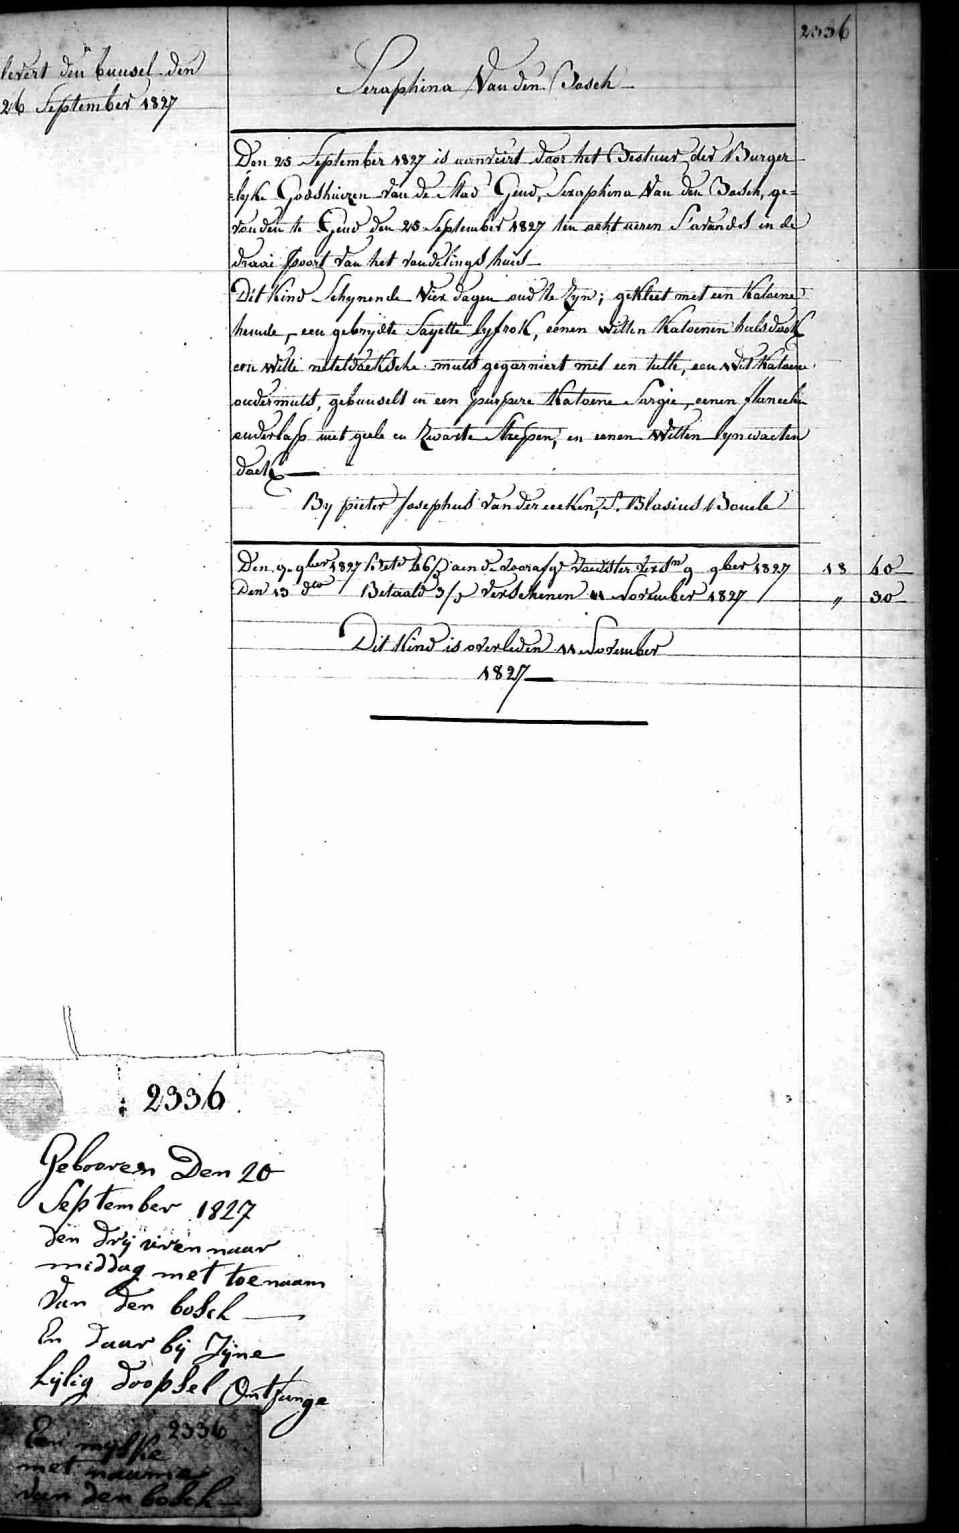 2336
levert den bunsel den
26 September 1827
Seraphina Van den Bosch
Den 25 September 1827 is aenveirt door het Bestuur der Burger
=lyke Godshuizen van de Stad Gend, Seraphina Van den Bosch, ge=
vonden te Gend den 25 September 1827 ten acht ueren S'avonds in de
draai poort van het vondelings huis
Dit Kind Schynende Vier dagen oud te Zyn; gekleet met een Katoene
hemde, een gebryde Sayette lyfrok, eenen witten Katoenen halsdoek
een witte neteldoeksche muts gegarniert met een tulle, een wit Katoene
ondermuts, gebunselt in een purpere Katoene Sargie, eenen flaneelen
onderlap met geele en Zwarte Strepen, en eenen Witten lynwaeten
doek
By pieter Josephus Van der eecken, S. Blasius Boucle
Den 9 9ber 1827 aen de 9 9ber 1827 18 40
Den 13 dto Betaald 3/3 Verschenen 11 November 1827 " 30
Dit Kind is overleden 11 November
1827
2336
Gebooren Den 20
September 1827
den drij uren naar
middag met toenaam
Van den bosch
En daar bij Zijne
hijlig doopsel Ontfange
2336
Een
met naame
van den bosch